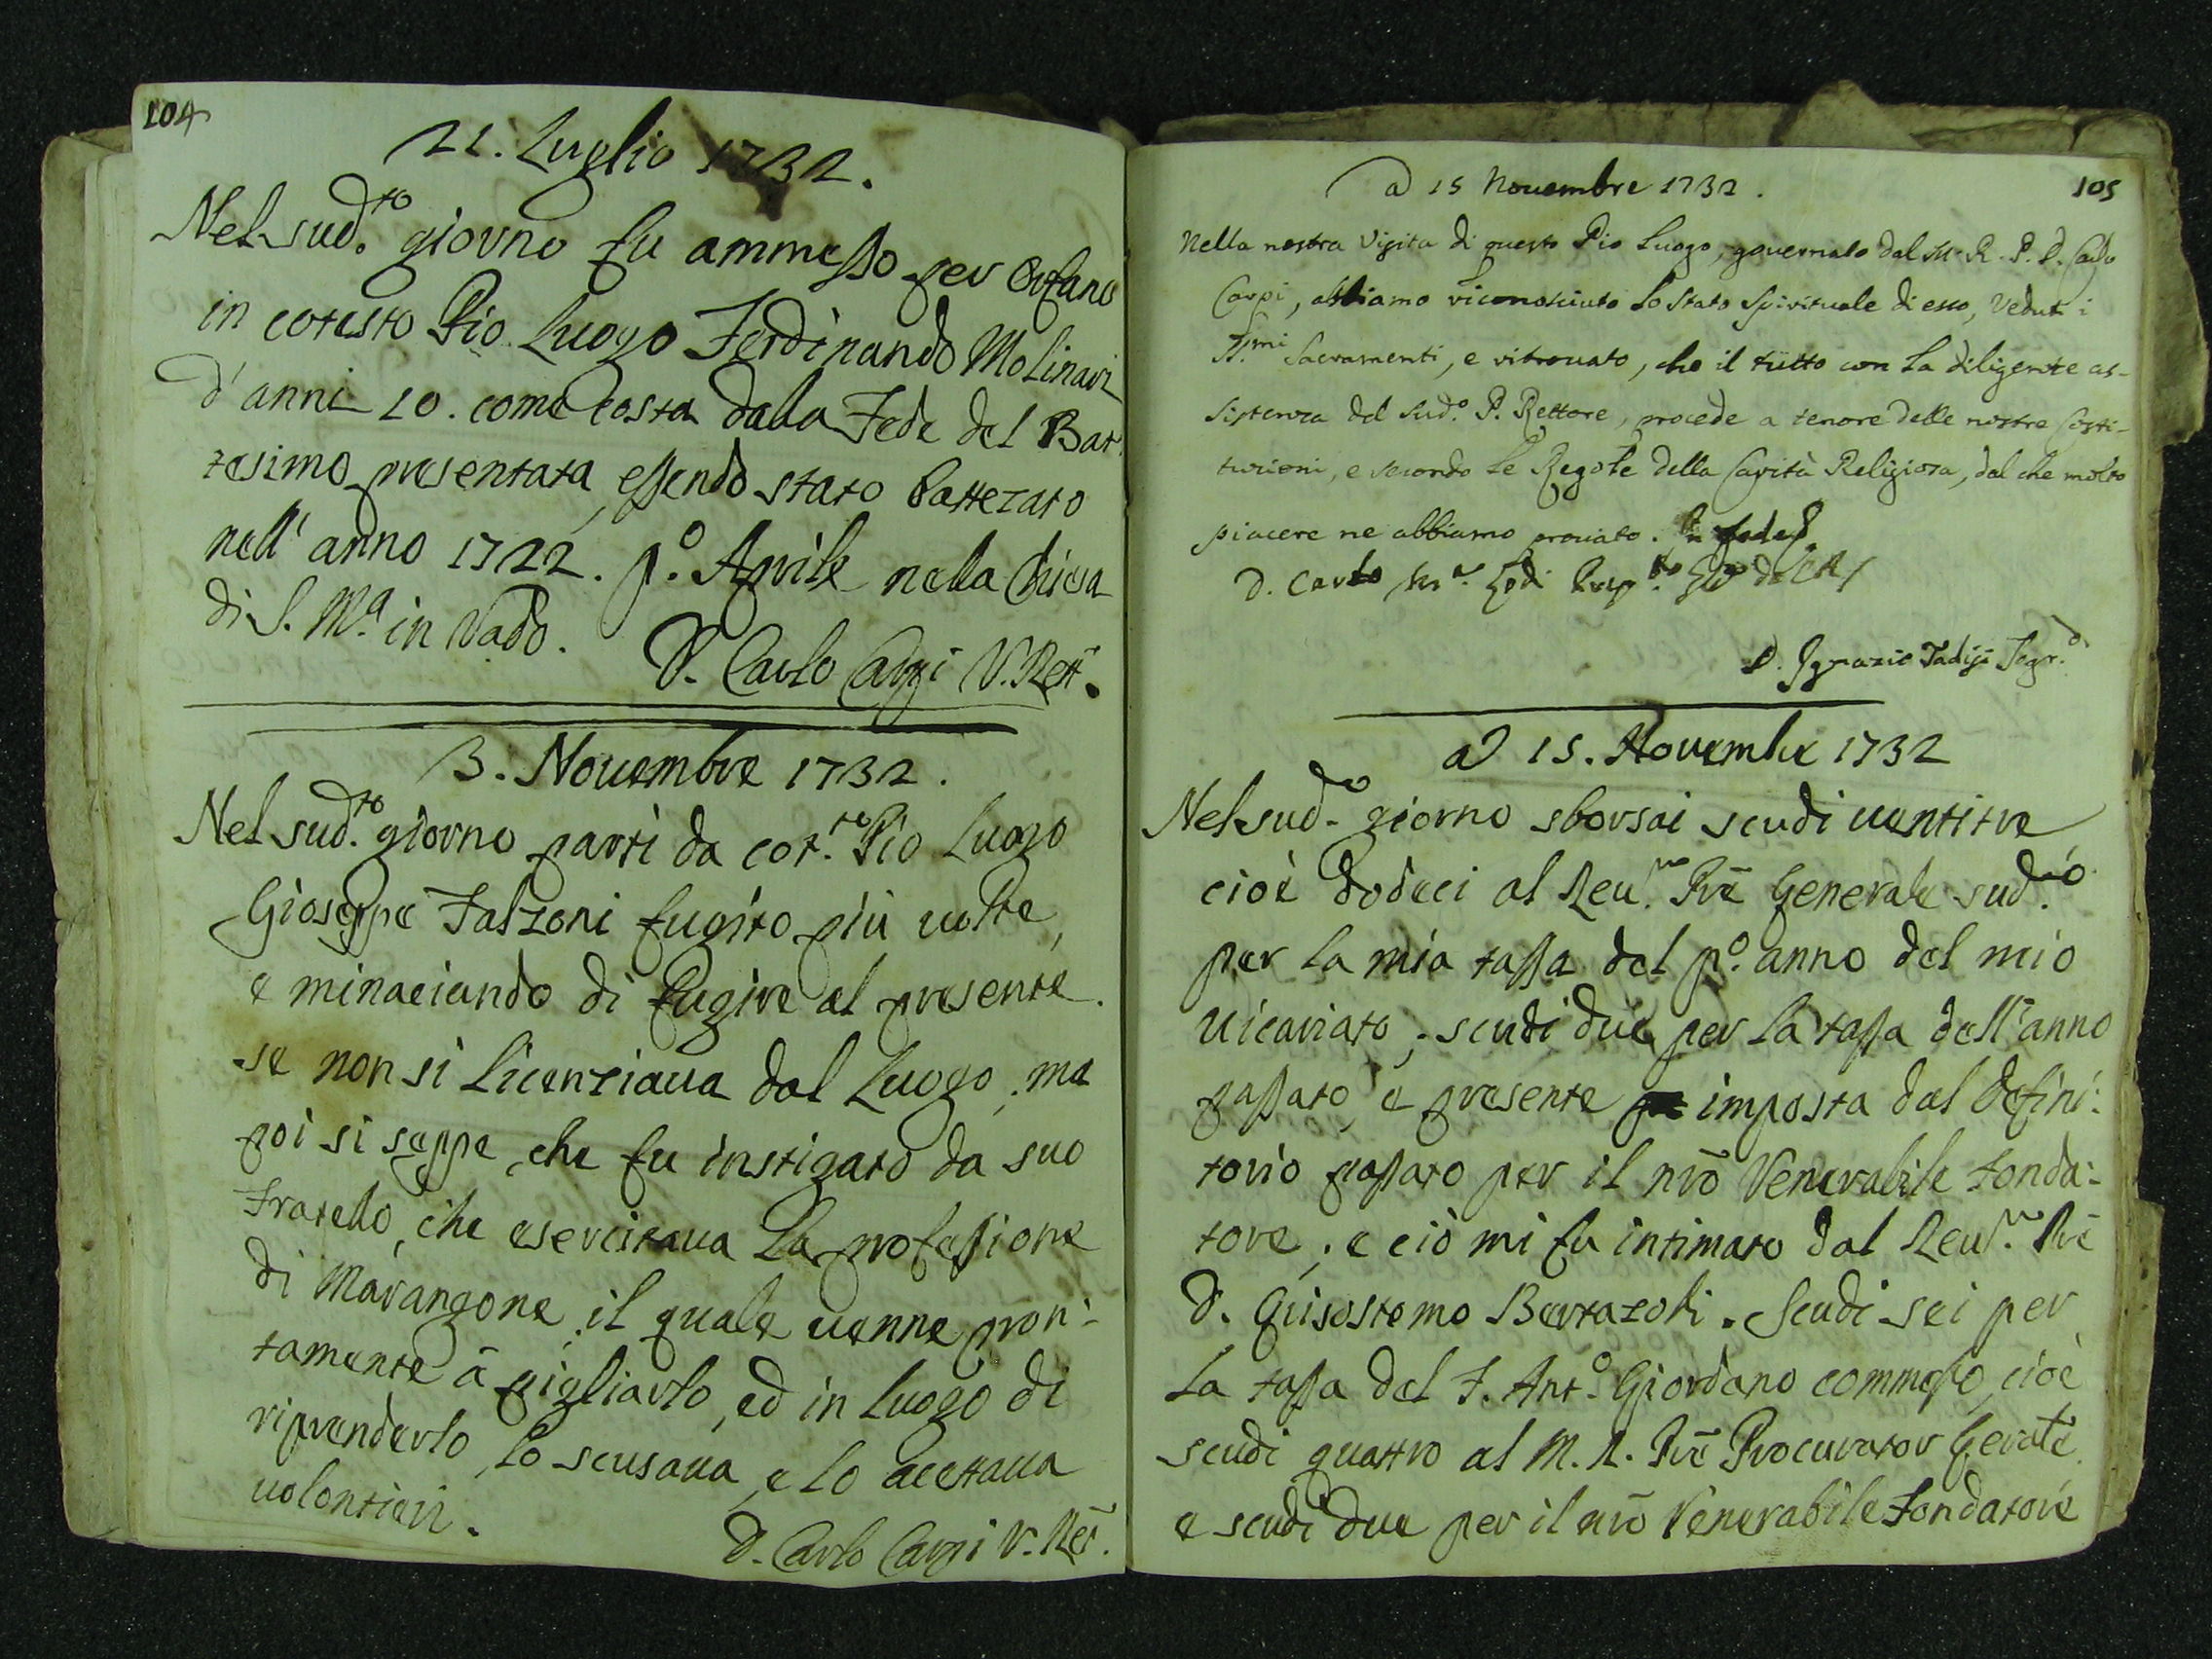 104
21. Luglio 1732.
Nel sud.to giorno fu ammesso per Orfano
in cotesto Pio Luogo Ferdinando Molinari
d'anni 10. come costa dalla Fede del Bat
tesimo presentata, essendo stato battezato
nell'anno 1722. p.o Aprile nella Chiesa
di S. M.a in Vado.
D. Carlo Carpi V. Rett.
3. Nouembre 1732.
Nel sud.to giorno partì da cot.to Pio Luogo
Gioseppe Falzoni fugito più uolte,
e minaciando di fugire al presente
se non si licenziaua dal Luogo; ma
poi si seppe, che fu instigato da suo
Fratello, che esercitaua la professione
di Marangone, il quale uenne pron:
tamente à pigliarlo, ed in luogo di
riprenderlo, lo scusaua, e lo acettaua
uolontieri.
D. Carlo Carpi V. Ret.
105
a 15 Nouembre 1732.
Nella nostra Visita di questo Pio Luogo, gouernato dal M. R. P. D. Carlo
Carpi, abbiamo riconosciuto lo stato Spirituale di esso, Veduti i
SS.mi Sacramenti, e ritrouato, che il tutto con la diligente as-
sistenza del Sud.o P. Rettore, procede a tenore delle nostre Costi-
tuzioni, e secondo le Regole della Carità Religiosa, dal che molto
piacere ne abbiamo prouato. In fede
D. Carlo M.a Lodi
D. Ignazio Tadisi Segr.o
a 15. Nouembre 1732
Nel sud.o giorno sborsai scudi uentitre
cioè dodeci al Reu.mo Pre Generale sud.o
per la mia tassa del p.o anno del mio
uicariato; scudi due per la tassa dell'anno
passato, e presente imposta dal Defini:
torio passato per il nro Venerabile Fonda:
tore; e ciò mi fu intimato dal Reu.mo Pre
D. Grisostomo Bertazoli. Scudi sei per
la tassa del F. Ant.o Giordano commesso, cioè
scudi quattro al M. R. Pre Procurator Gerale
e scudi due per il nro Venerabile Fondatore